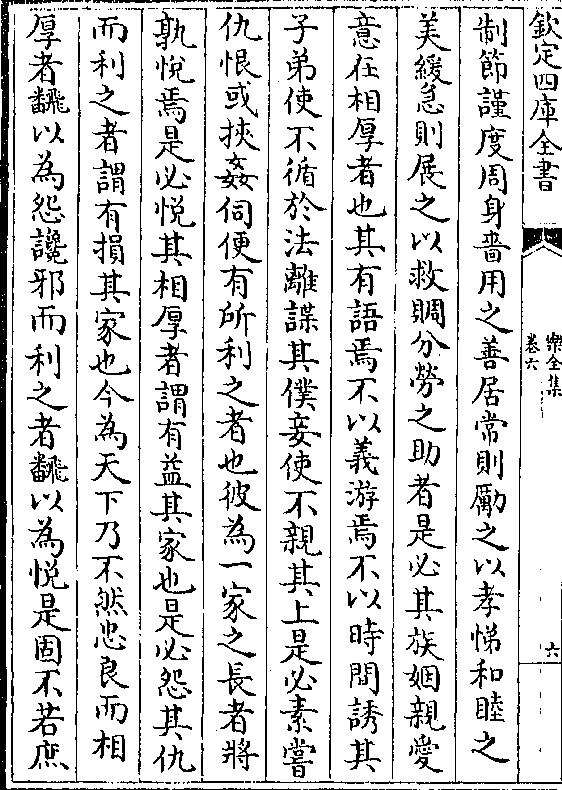 欽定四庫全書
樂全集
卷六
六
制節謹度周身嗇用之善居常則勵之以孝悌和睦之
美緩急則展之以救賙分勞之助者是必其族姻親愛
意在相厚者也其有語焉不以義游焉不以時間誘其
子弟使不循於法離諜其僕妾使不親其上是必素嘗
仇恨或挾姦伺便有所利之者也彼為一家之長者將
孰悅焉是必悅其相厚者謂有益其家也是必怨其仇
而利之者謂有損其家也今為天下乃不然忠良而相
厚者飜以為怨讒邪而利之者飜以為悅是固不若庶